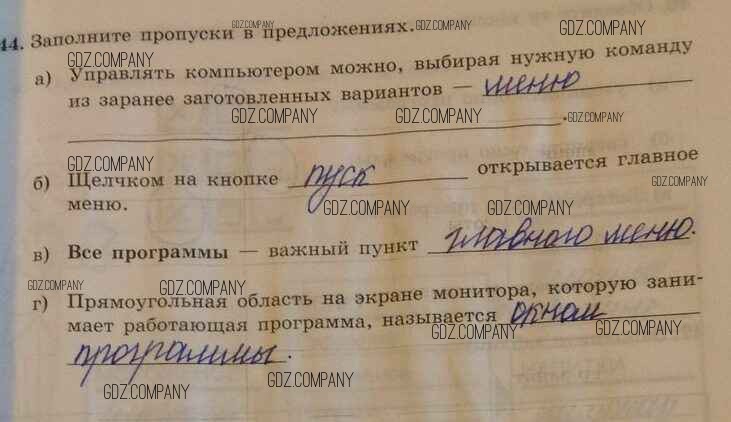 44. Заполните пропуски в предложениях.
GDZ.COMPANY GDZ.COMPANY GDZ.COMPANY
GDZ.COMPANY
а) Управлять компьютером можно, выбирая нужную команду
из заранее заготовленных вариантов — меню
GDZ.COMPANY GDZ.COMPANY GDZ.COMPANY
GDZ.COMPANY
б) Щелчком на кнопке пуск открывается главное
GDZ.COMPANY
меню.
GDZ.COMPANY GDZ.COMPANY
в) Все программы — важный пункт главного меню.
GDZ.COMPANY GDZ.COMPANY
г) Прямоугольная область на экране монитора, которую зани-
мает работающая программа, называется окном
GDZ.COMPANY GDZ.COMPANY
программы.
GDZ.COMPANY GDZ.COMPANY